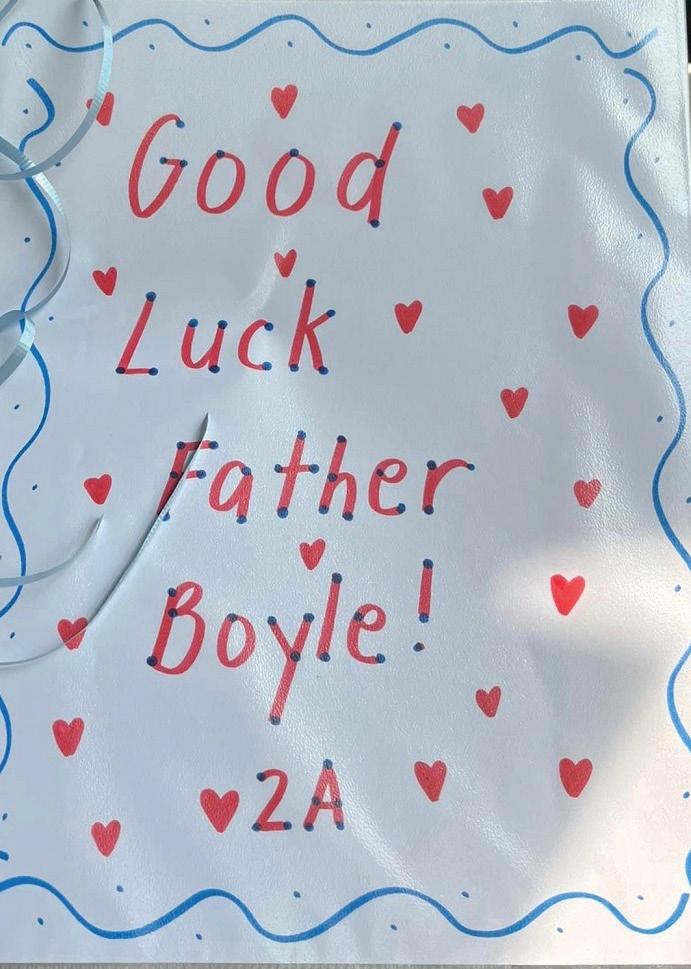 Good
Luck
Father
Boyle!
2A